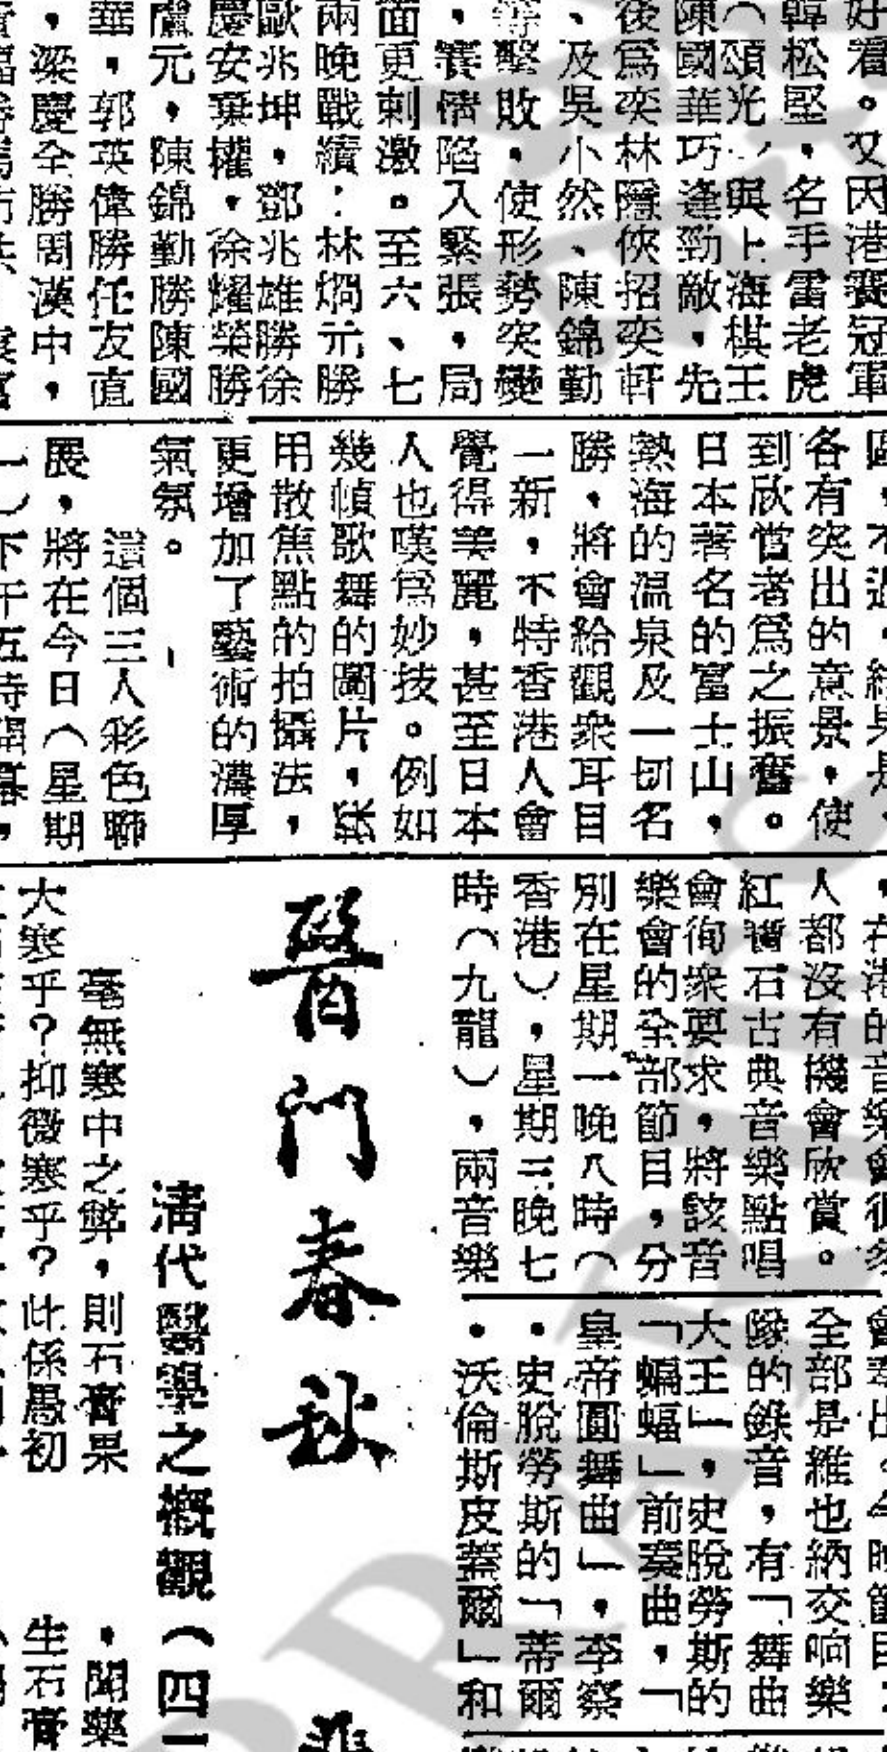 好看。又因港賽冠軍
韓松堅,名手雷老虎
(頌光)與上海棋王
陳國華巧逢勁敵,先
後為奕林隱俠招奕軒
、及吳小然、陳錦勤
擊敗,使形勢突變
,賽情陷入緊張,局
面更刺激。至六、七
兩晚戰績:林烱元勝
歐兆坤,鄧兆雄勝徐
慶安棄權,徐耀榮勝
盧元,陳錦勤勝陳國
華,郭英偉勝任友直
,梁慶全勝周漢中,
各有突出的意景,使
到欣賞者為之振奮。
日本著名的富士山,
熱海的溫泉及一切名
勝,將會給觀衆耳目
一新,不特香港人會
覺得美麗,甚至日本
人也嘆為妙技。例如
幾幀歌舞的圖片,紙
用散焦點的拍攝法,
更增加了藝術的濃厚
氣氛。
這個三人彩色聯
展,將在今日(星期
一)下午五時揭幕,
,在港的音樂會很多
人都沒有機會欣賞。
紅寶石古典音樂點唱
會徇衆要求,將該音
樂會的全部節目,分
別在星期一晚八時(
香港),星期三晚七
時(九龍),兩音樂
全部是維也納交响樂
隊的錄音,有「舞曲
大王」,史脫勞斯的
「蝙蝠」前奏曲,「
皇帝圓舞曲」,李察
・史脫勞斯的「蒂爾
・沃倫斯皮蓋爾」和
醫門春秋
清代醫學之概觀(四一
毫無寒中之弊,則石膏果
大寒乎?抑微寒乎?此係愚初
,聞藥
生石膏